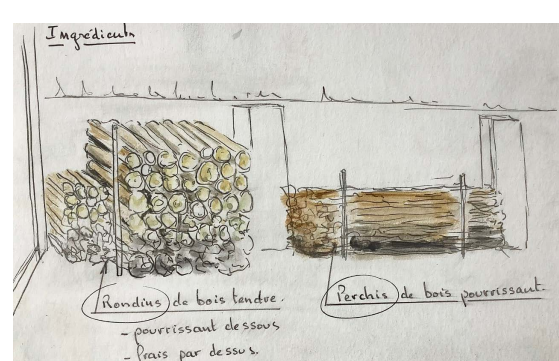 Ingrédients
Rondins de bois tendre.
- pourrissant dessous
- frais par dessus.
Perchis de bois pourrissant.